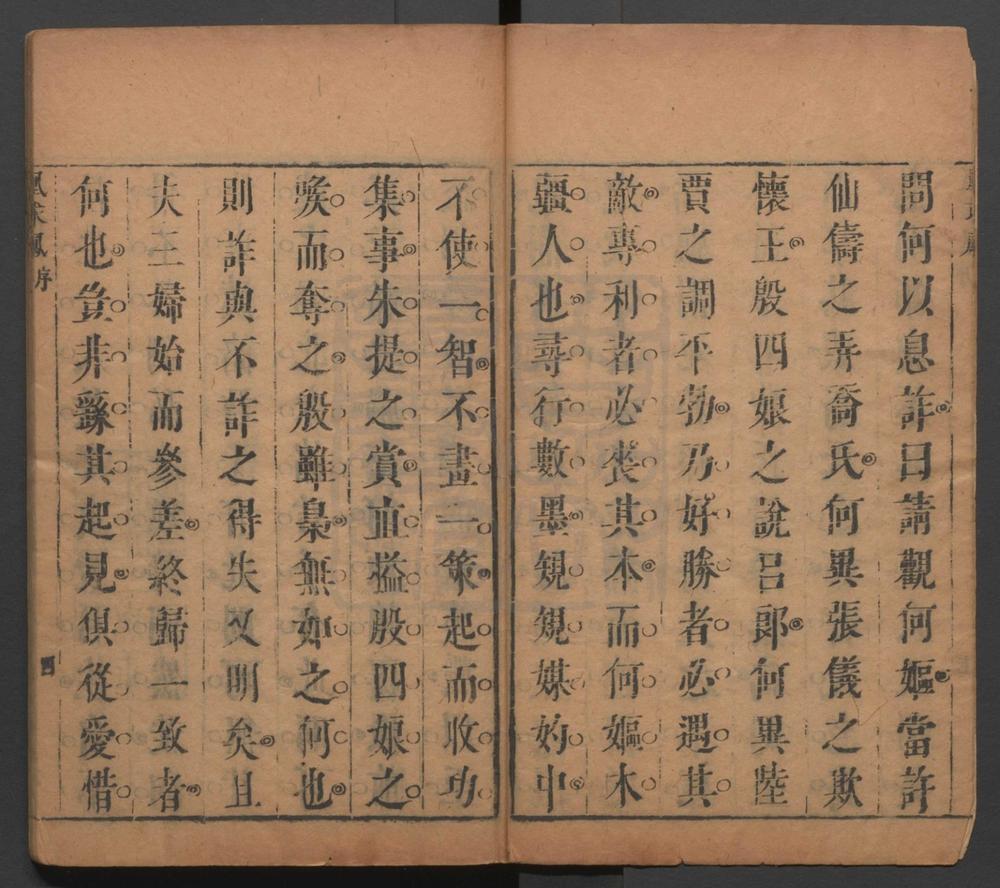 問何以息詐曰請觀何嫗當許
仙儔之弄喬氏何異張儀之欺
懷王殷四娘之說呂郎何異陸
賈之調平勃乃好勝者必遇其
敵專利者必喪其本而何嫗木
疆人也尋行數墨䂓䂓媒妁中
不使一智不畫一策起而收功
集事朱提之賞直搤殷四娘之
喉而奪之殷雖梟無如之何也
則詐與不詐之得失又明矣且
夫三婦始而參差終歸一致者
何也豈非繇其起見俱從愛惜
凰求鳳序
四